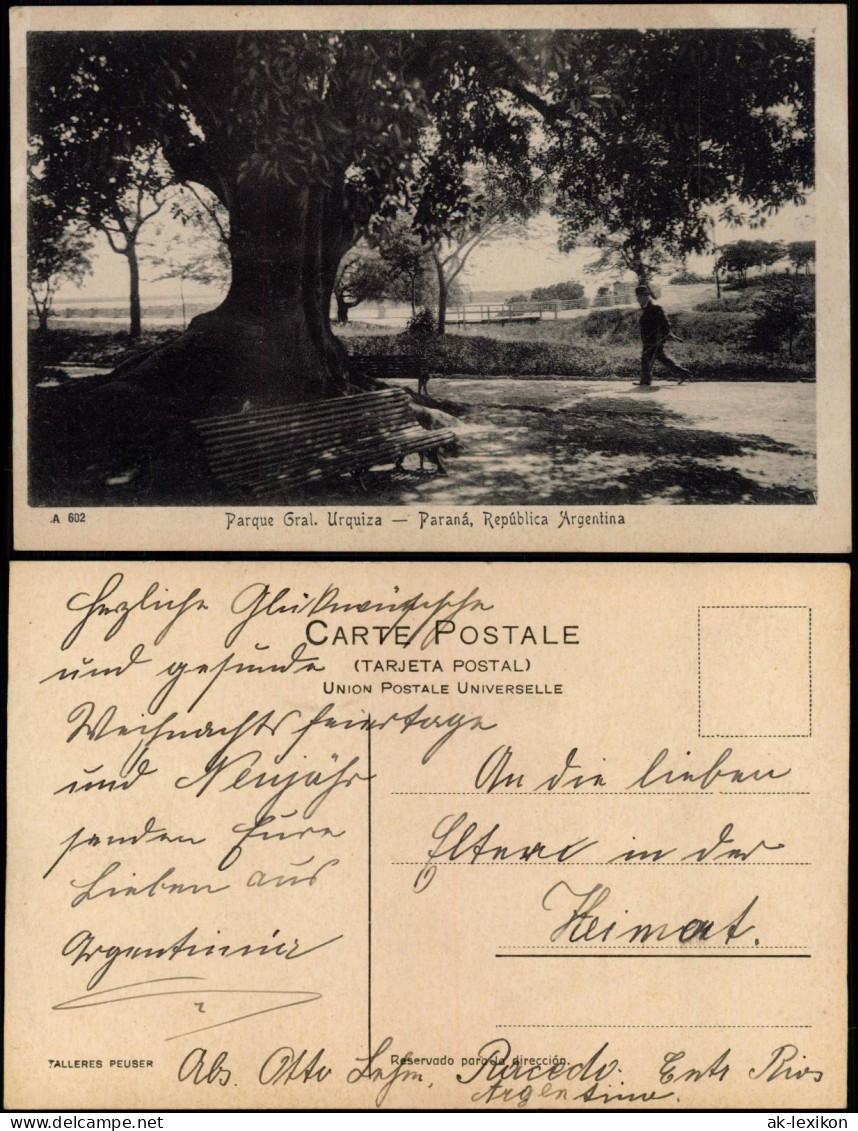 A 602
Parque Gral. Urquiza — Paraná, República Argentina
Herzliche Glükwünsche
und gesunde
Weihnachtsfeiertage
und Neujahr
senden Eure
Lieben aus
Argentinien
CARTE POSTALE
(TARJETA POSTAL)
UNION POSTALE UNIVERSELLE
An die lieben
Eltern in der
Heimat.
TALLERES PEUSER
Reservado para la dirección.
Abs. Otto Lehm, Racedo. Entr Rios
Argentina.
ak-lexikon